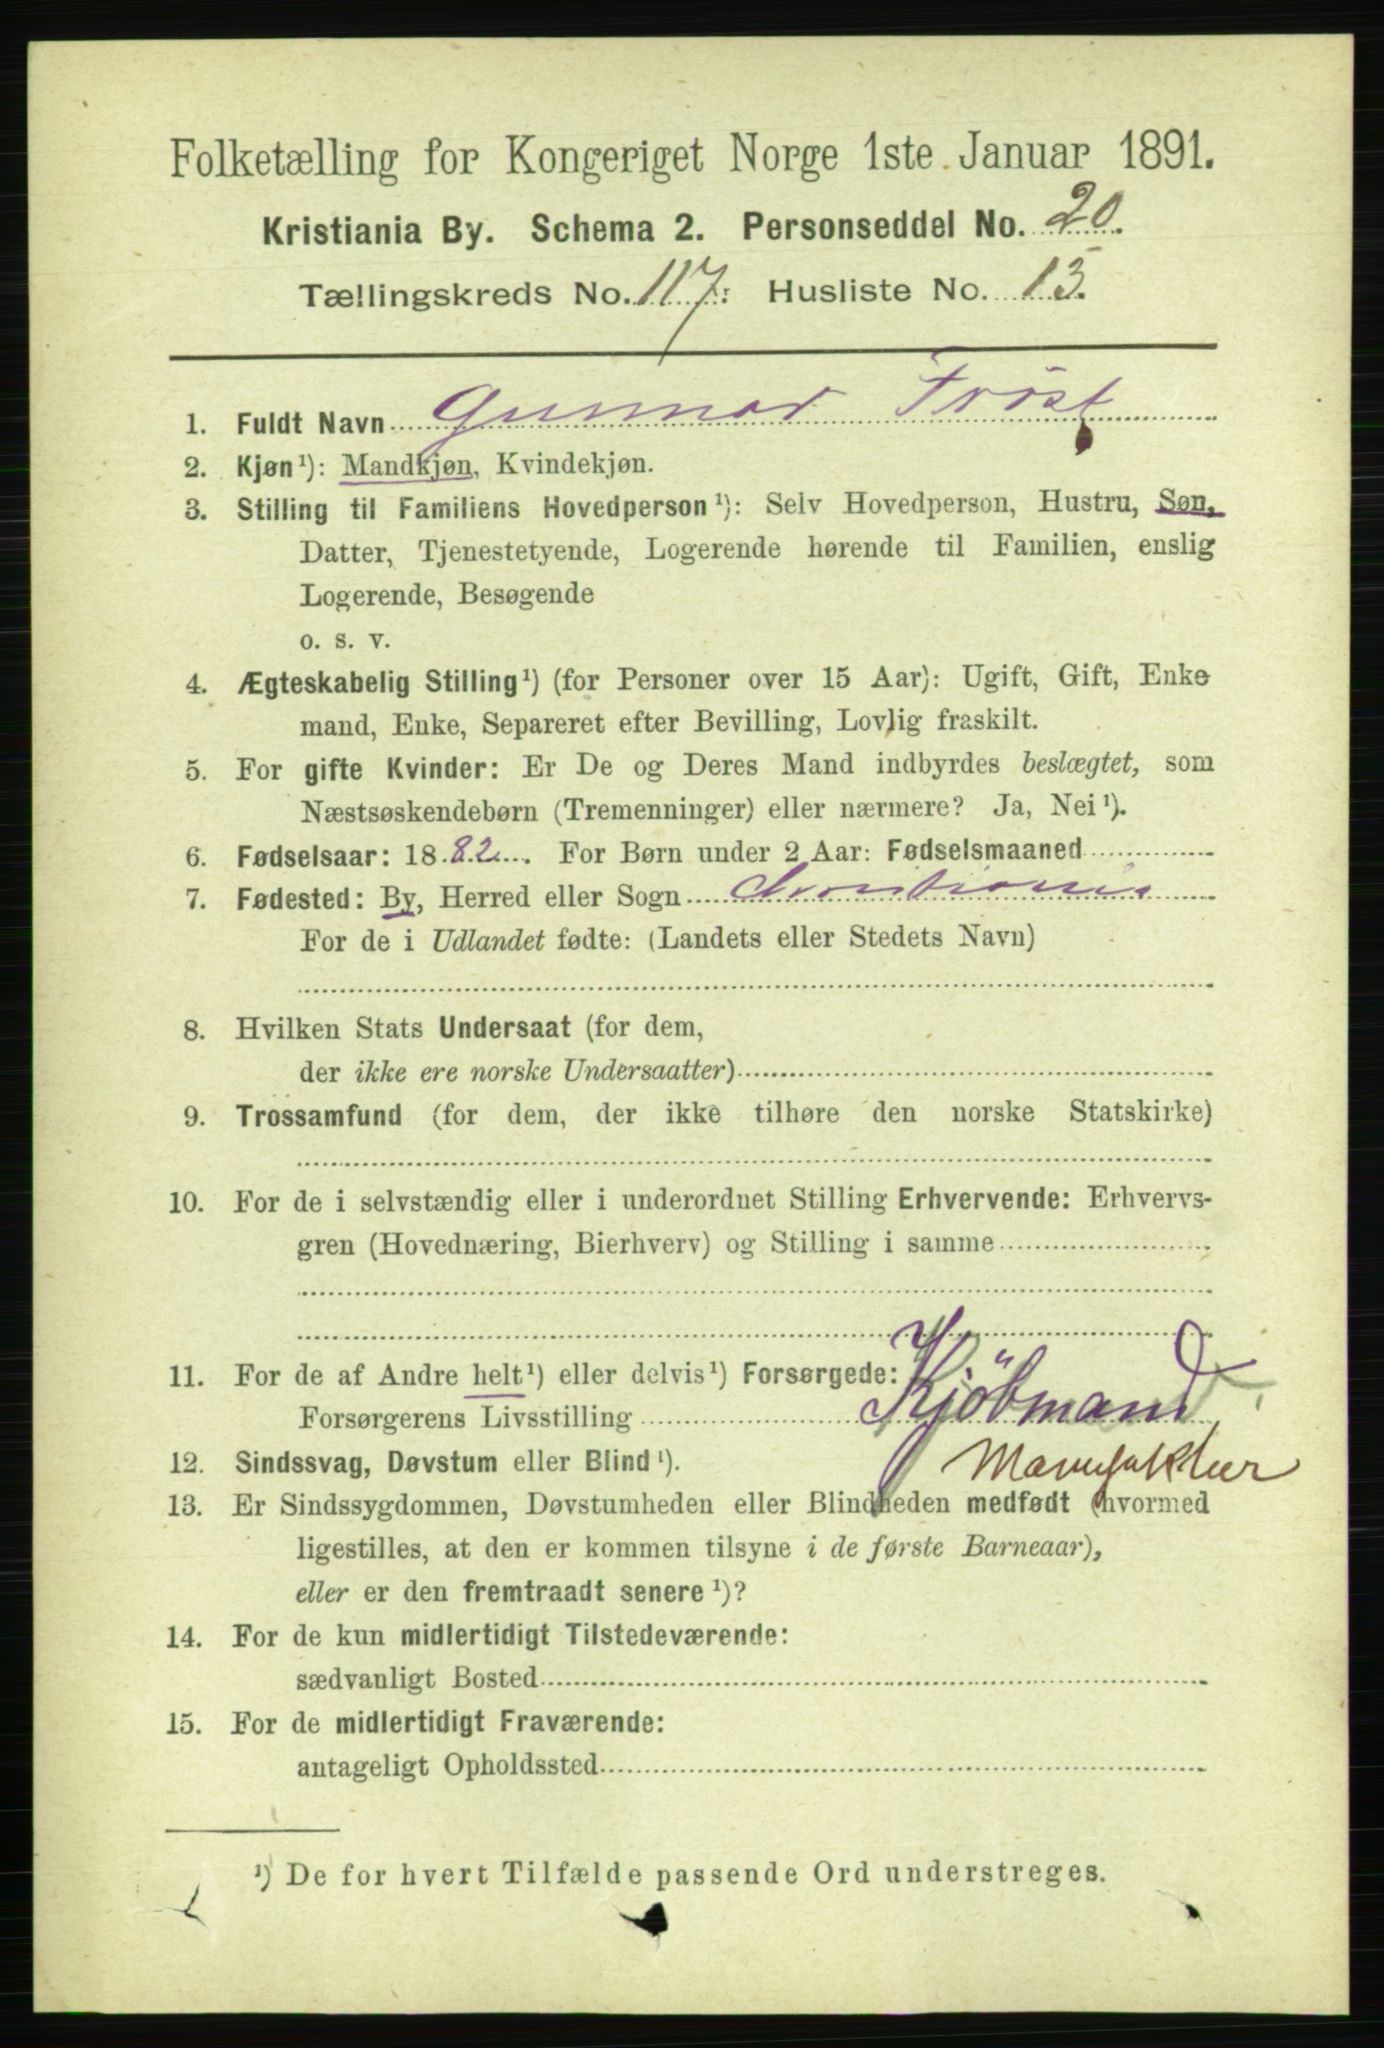 Folketælling for Kongeriget Norge 1ste Januar 1891.
Kristiania By. Schema 2. Personseddel No. 20.
Tællingskreds No. 117. Husliste No. 13.
1. Fuldt Navn Gunnar Fröst
2. Kjøn¹): Mandkjøn, Kvindekjøn.
3. Stilling til Familiens Hovedperson¹): Selv Hovedperson, Hustru, Søn,
Datter, Tjenestetyende, Logerende hørende til Familien, enslig
Logerende, Besøgende
o. s. v.
4. Ægteskabelig Stilling¹) (for Personer over 15 Aar): Ugift, Gift, Enke
mand, Enke, Separeret efter Bevilling, Lovlig fraskilt.
5. For gifte Kvinder: Er De og Deres Mand indbyrdes beslægtet, som
Næstsøskendebørn (Tremenninger) eller nærmere? Ja, Nei¹).
6. Fødselsaar: 1882. For Børn under 2 Aar: Fødselsmaaned
7. Fødested: By, Herred eller Sogn Christiania
For de i Udlandet fødte: (Landets eller Stedets Navn)
8. Hvilken Stats Undersaat (for dem,
der ikke ere norske Undersaatter)
9. Trossamfund (for dem, der ikke tilhøre den norske Statskirke)
10. For de i selvstændig eller i underordnet Stilling Erhvervende: Erhvervs-
gren (Hovednæring, Bierhverv) og Stilling i samme
11. For de af Andre helt¹) eller delvis¹) Forsørgede:
Forsørgerens Livsstilling Kjöbmand
Manufaktur
12. Sindssvag, Døvstum eller Blind¹).
13. Er Sindssygdommen, Døvstumheden eller Blindheden medfødt (hvormed
ligestilles, at den er kommen tilsyne i de første Barneaar),
eller er den fremtraadt senere¹)?
14. For de kun midlertidigt Tilstedeværende:
sædvanligt Bosted
15. For de midlertidigt Fraværende:
antageligt Opholdssted
¹) De for hvert Tilfælde passende Ord understreges.